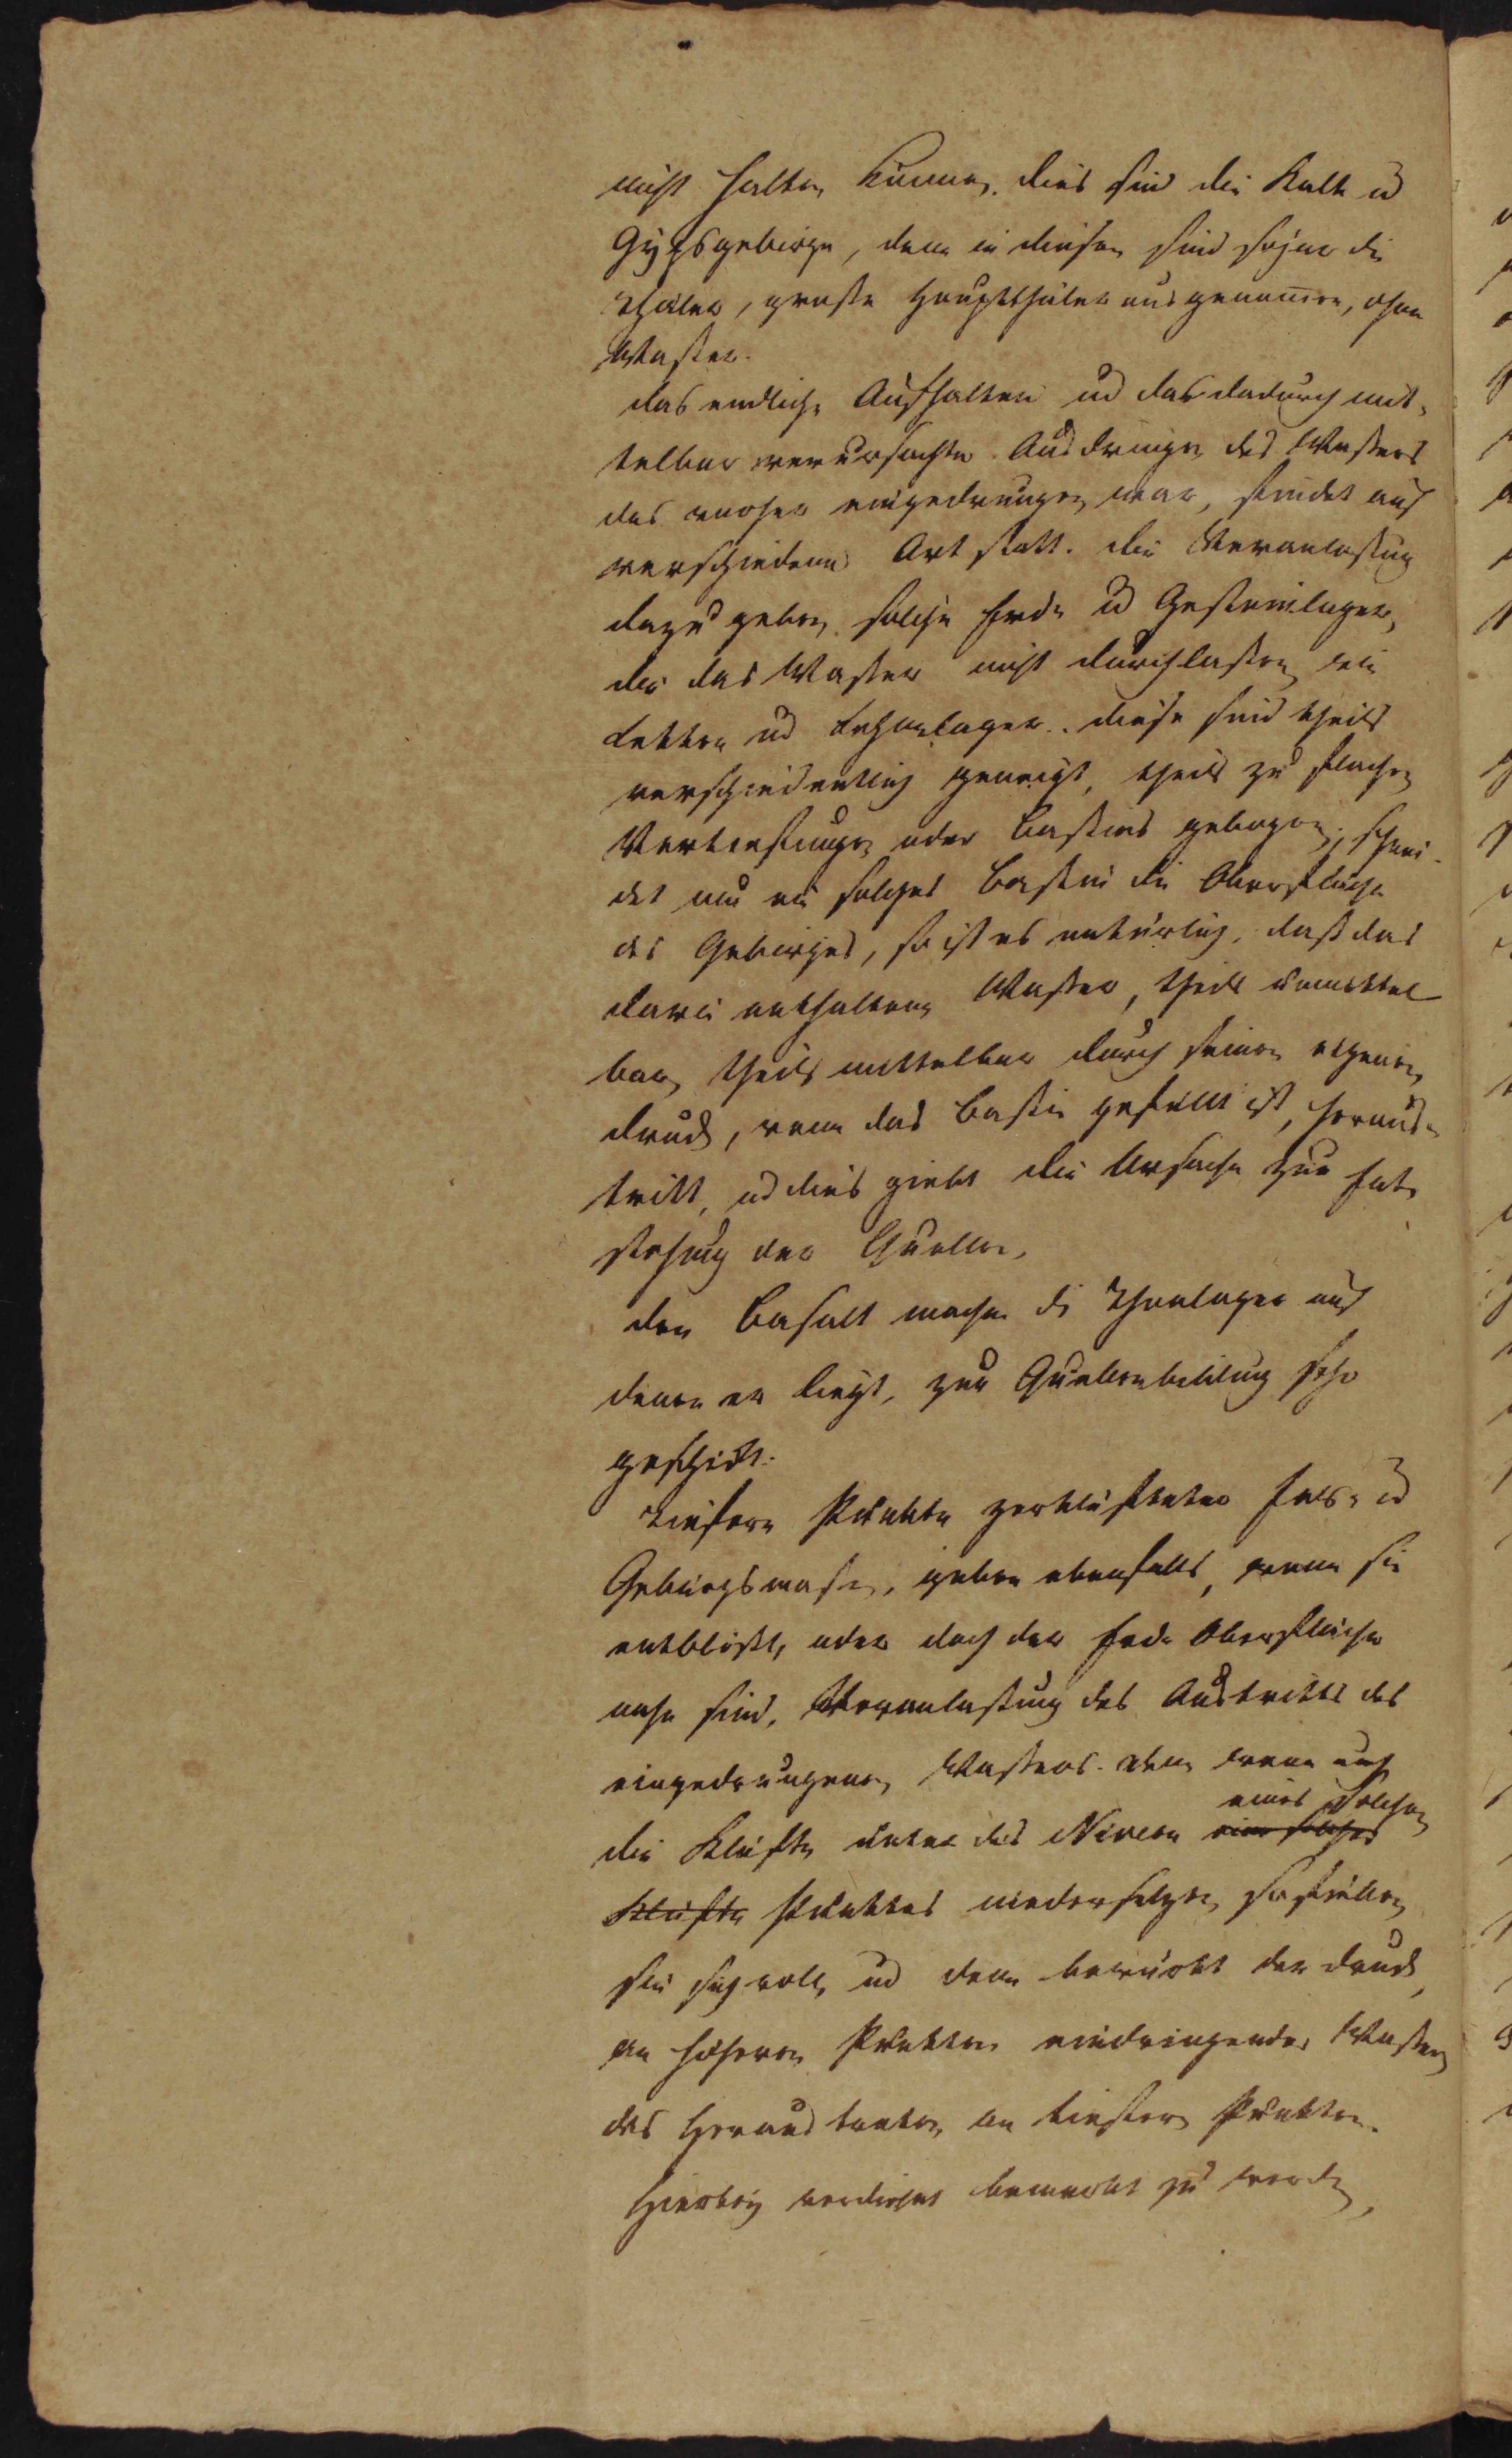 nicht halten können. dies sind die Kalk u
Gypsgebirge, denn in diesen sind sogar die
Thäler, große Hauptthäler ausgenommen, ohne
Wasser.
das endliche Aufhalten und das dadurch mit-
telbar verursachte Ausdringen des Wassers
das vorher eingedrungen war, findet auf
verschiedene Art statt. die Veranlassung
dazu geben solche Erde u Gesteinlager,
die das Wasser nicht durchlassen wie
Letten und Lehmlager. diese sind theils
verschiedentlich geneigt, theils zu flachen
Vertiefungen oder Bassins gebogen; schnei-
det nun ein solches Bassin die Oberfläche
des Gebirges, so ist es natürlich, daß das
darin enthaltene Wasser, theils unmittel
bar, theils mittelbar durch seinen eigenen
druck, wenn das Bassin gefüllt ist, heraus-
tritt, und dies giebt die Ursache zur Ent-
stehung der Quellen.
den Basalt machen die Thonlager auf
denen er liegt, zur Quellenbildung sehr
geschickt.
Tiefere Punkte zerklüfteter Fels- u
Gebirgsmassen, geben ebenfalls, wenn sie
entblößt, oder doch der Erd- Oberfläche
nahe sind, Veranlassung des Austritts des
eingedrungenen Wassers. denn wenn auch
eines solchen
die Klüfte unter das Niveau eines solches
Klüfte Punktes niedersetzen, so füllen
sie sich voll, und dann bewürkt der druck,
an höheren Punkten eindringender Wasser,
das Heraustreten an tiefern Punkten.
Hierbey verdienet bemerkt zu werden,